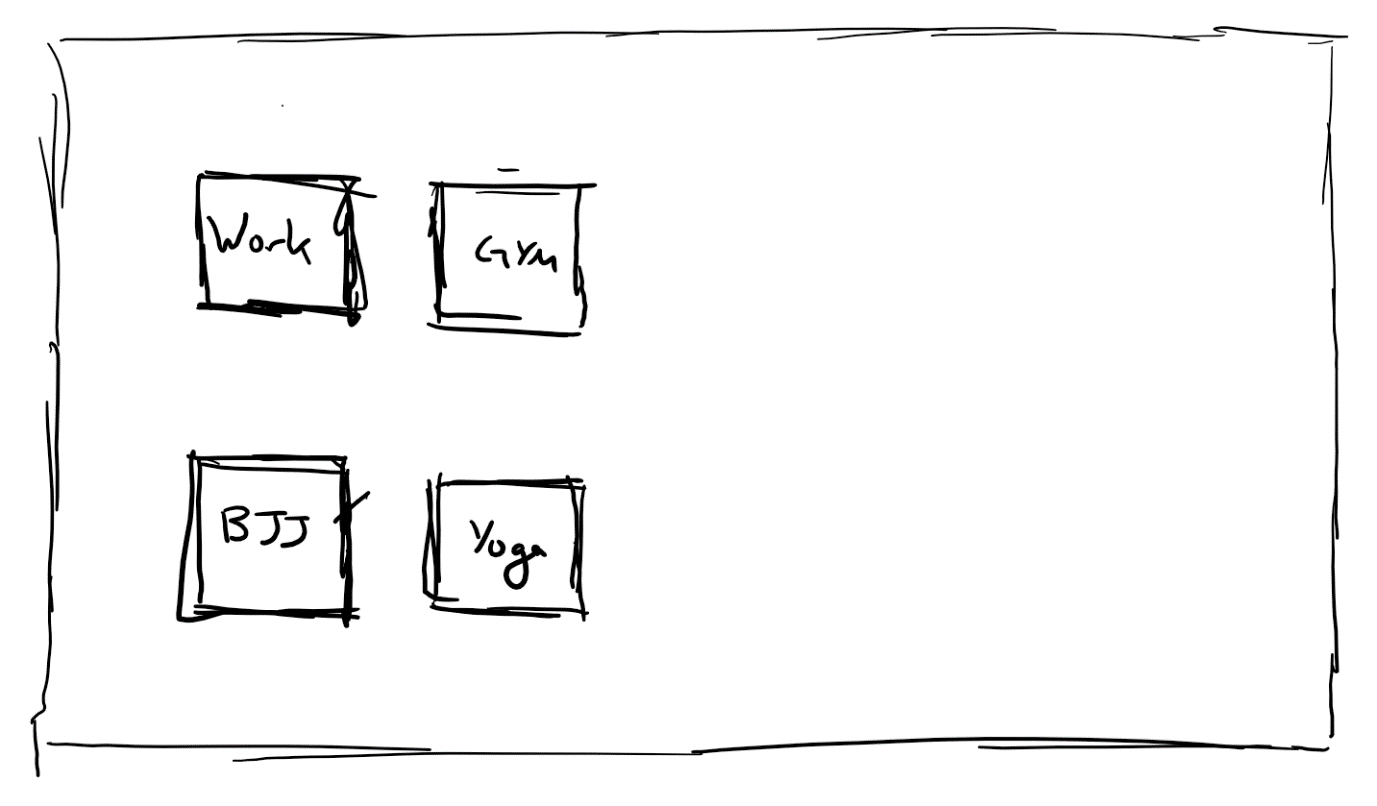 Work
GYM
BJJ
Yoga